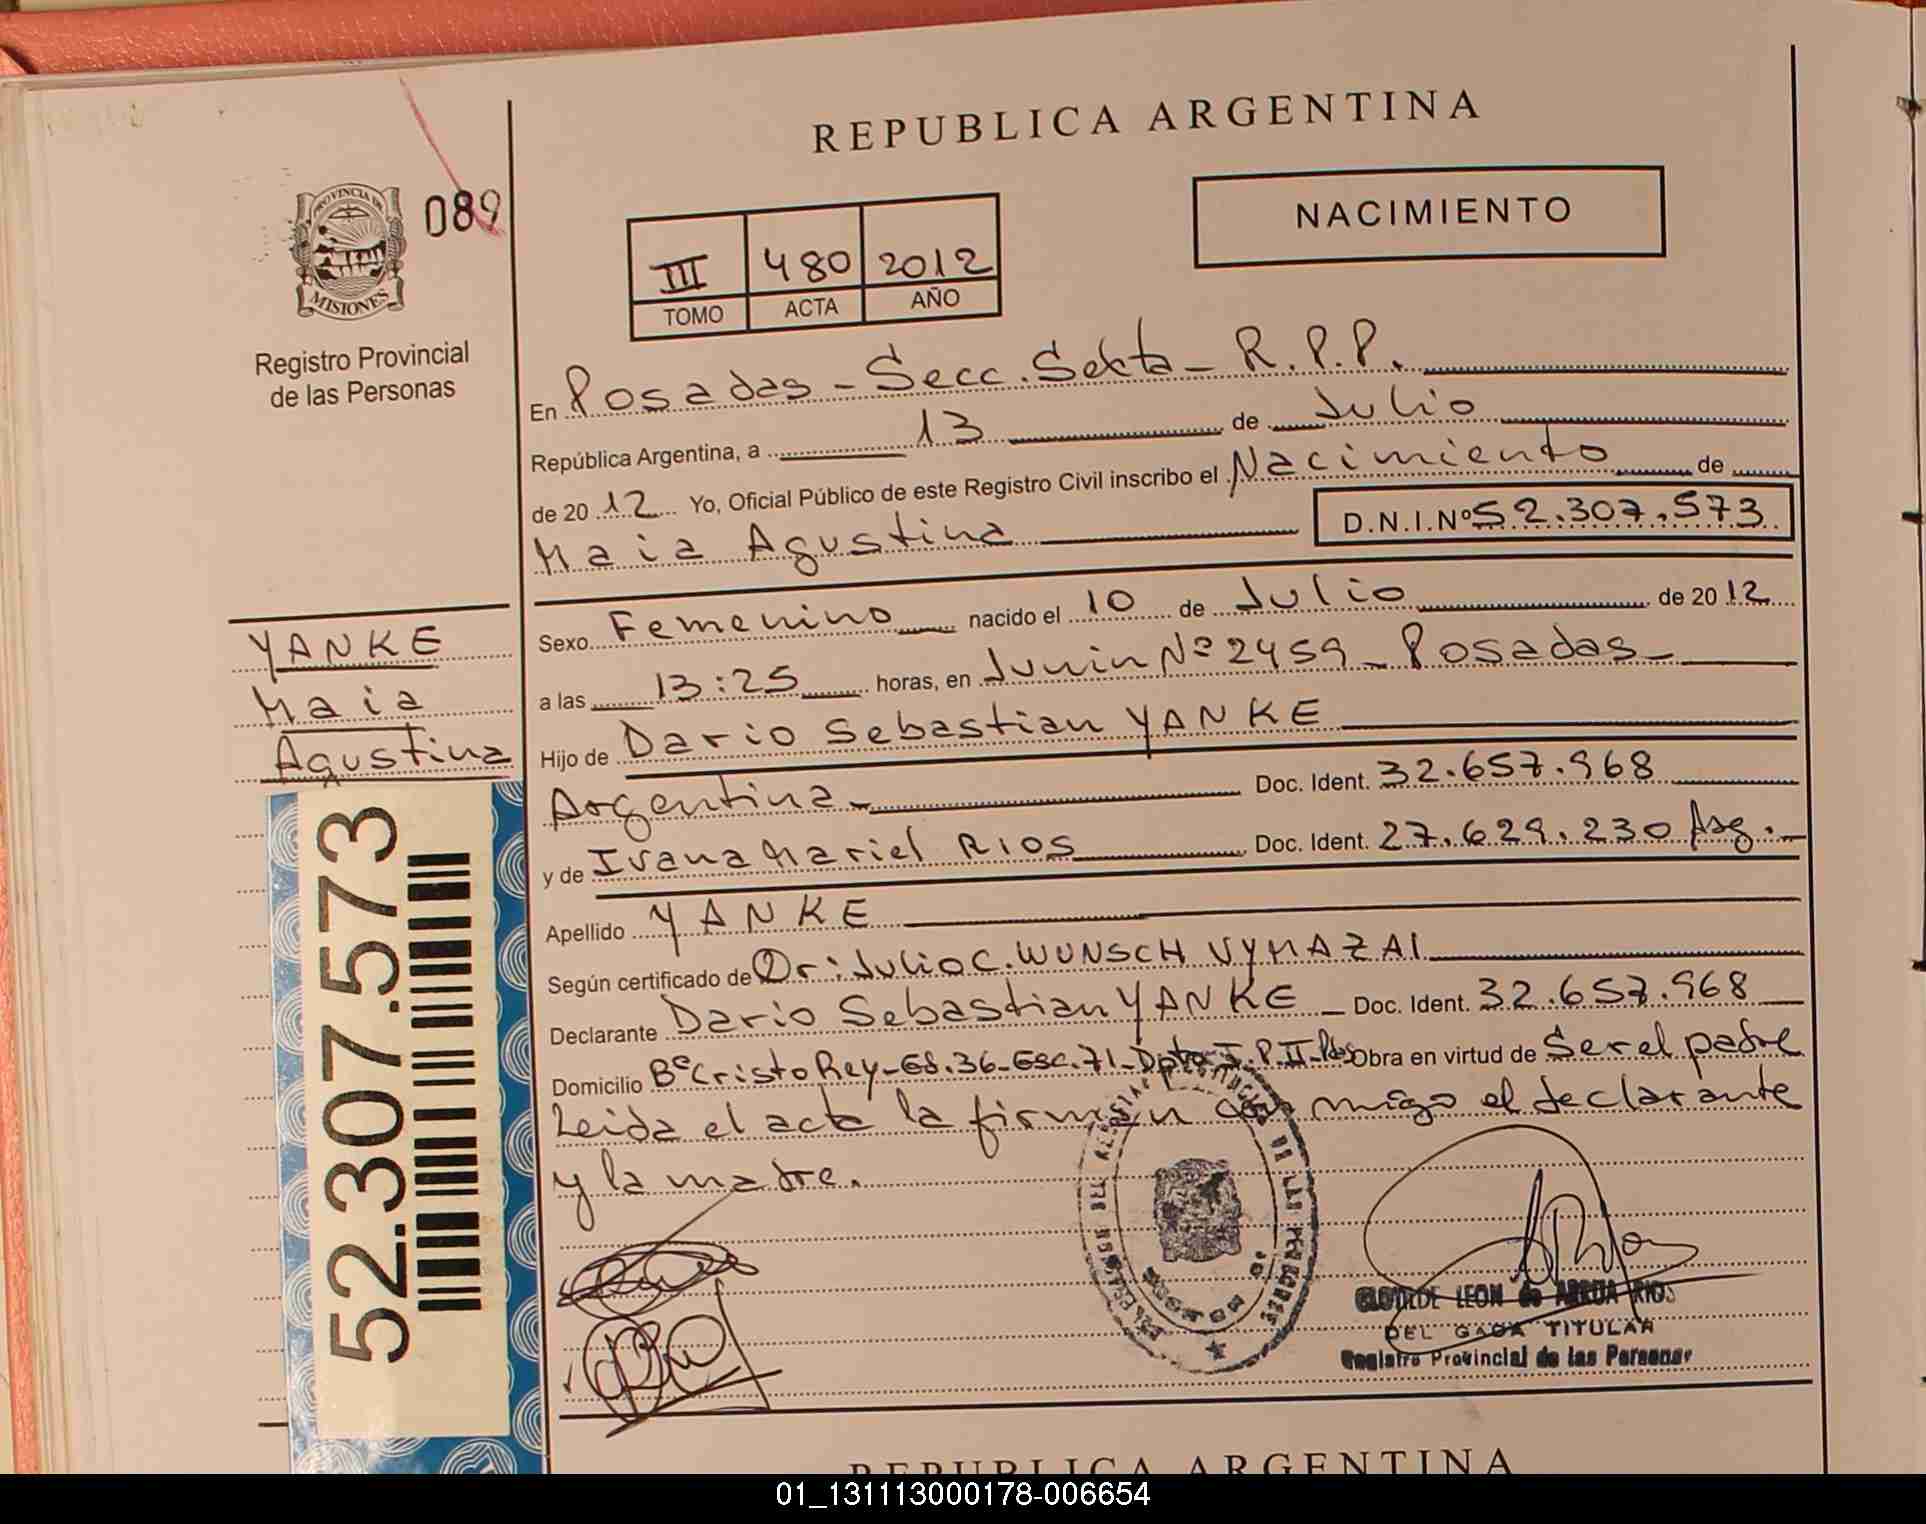 REPUBLICA ARGENTINA
PROVINCIA DE
MISIONES
089
Registro Provincial
de las Personas
NACIMIENTO
III 480 2012
TOMO ACTA AÑO
En Posadas - Secc. Sexta - R.P.P.
República Argentina, a 13 de Julio
de 2012 Yo, Oficial Público de este Registro Civil inscribo el Nacimiento de
Maia Agustina D.N.I.Nº 52.307.573
YANKE
Maia
Agustina
Sexo Femenino nacido el 10 de Julio de 2012
a las 13:25 horas, en Junin Nº 2459 - Posadas -
Hijo de Dario Sebastian YANKE
Argentina - Doc. Ident. 32.657.968
y de Ivana Mariel RIOS Doc. Ident. 27.629.230 Arg. -
Apellido YANKE
Según certificado de Dr: Julio C. WUNSCH VYMAZAL
Declarante Dario Sebastian YANKE - Doc. Ident. 32.657.968
Domicilio Bº Cristo Rey - Ed. 36 - Esc. 71 - Dpto I. P. II - Pdas Obra en virtud de Ser el padre
Leida el acta la firman conmigo el declarante
y la madre.
52.307.573
CLOTILDE LEON de ARRUA RIOS
TITULAR
Registro Provincial de las Personas
REPUBLICA ARGENTINA
01_131113000178-006654